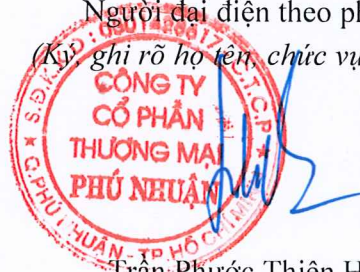 Người đại diện theo ph
(Ký, ghi rõ họ tên, chức vụ
CÔNG TY
CỔ PHẦN
THƯƠNG MẠI
PHÚ NHUẬN
Q.PHÚ NHUẬN - TP.HỒ CHÍ MINH
Trần Phước Thiện H